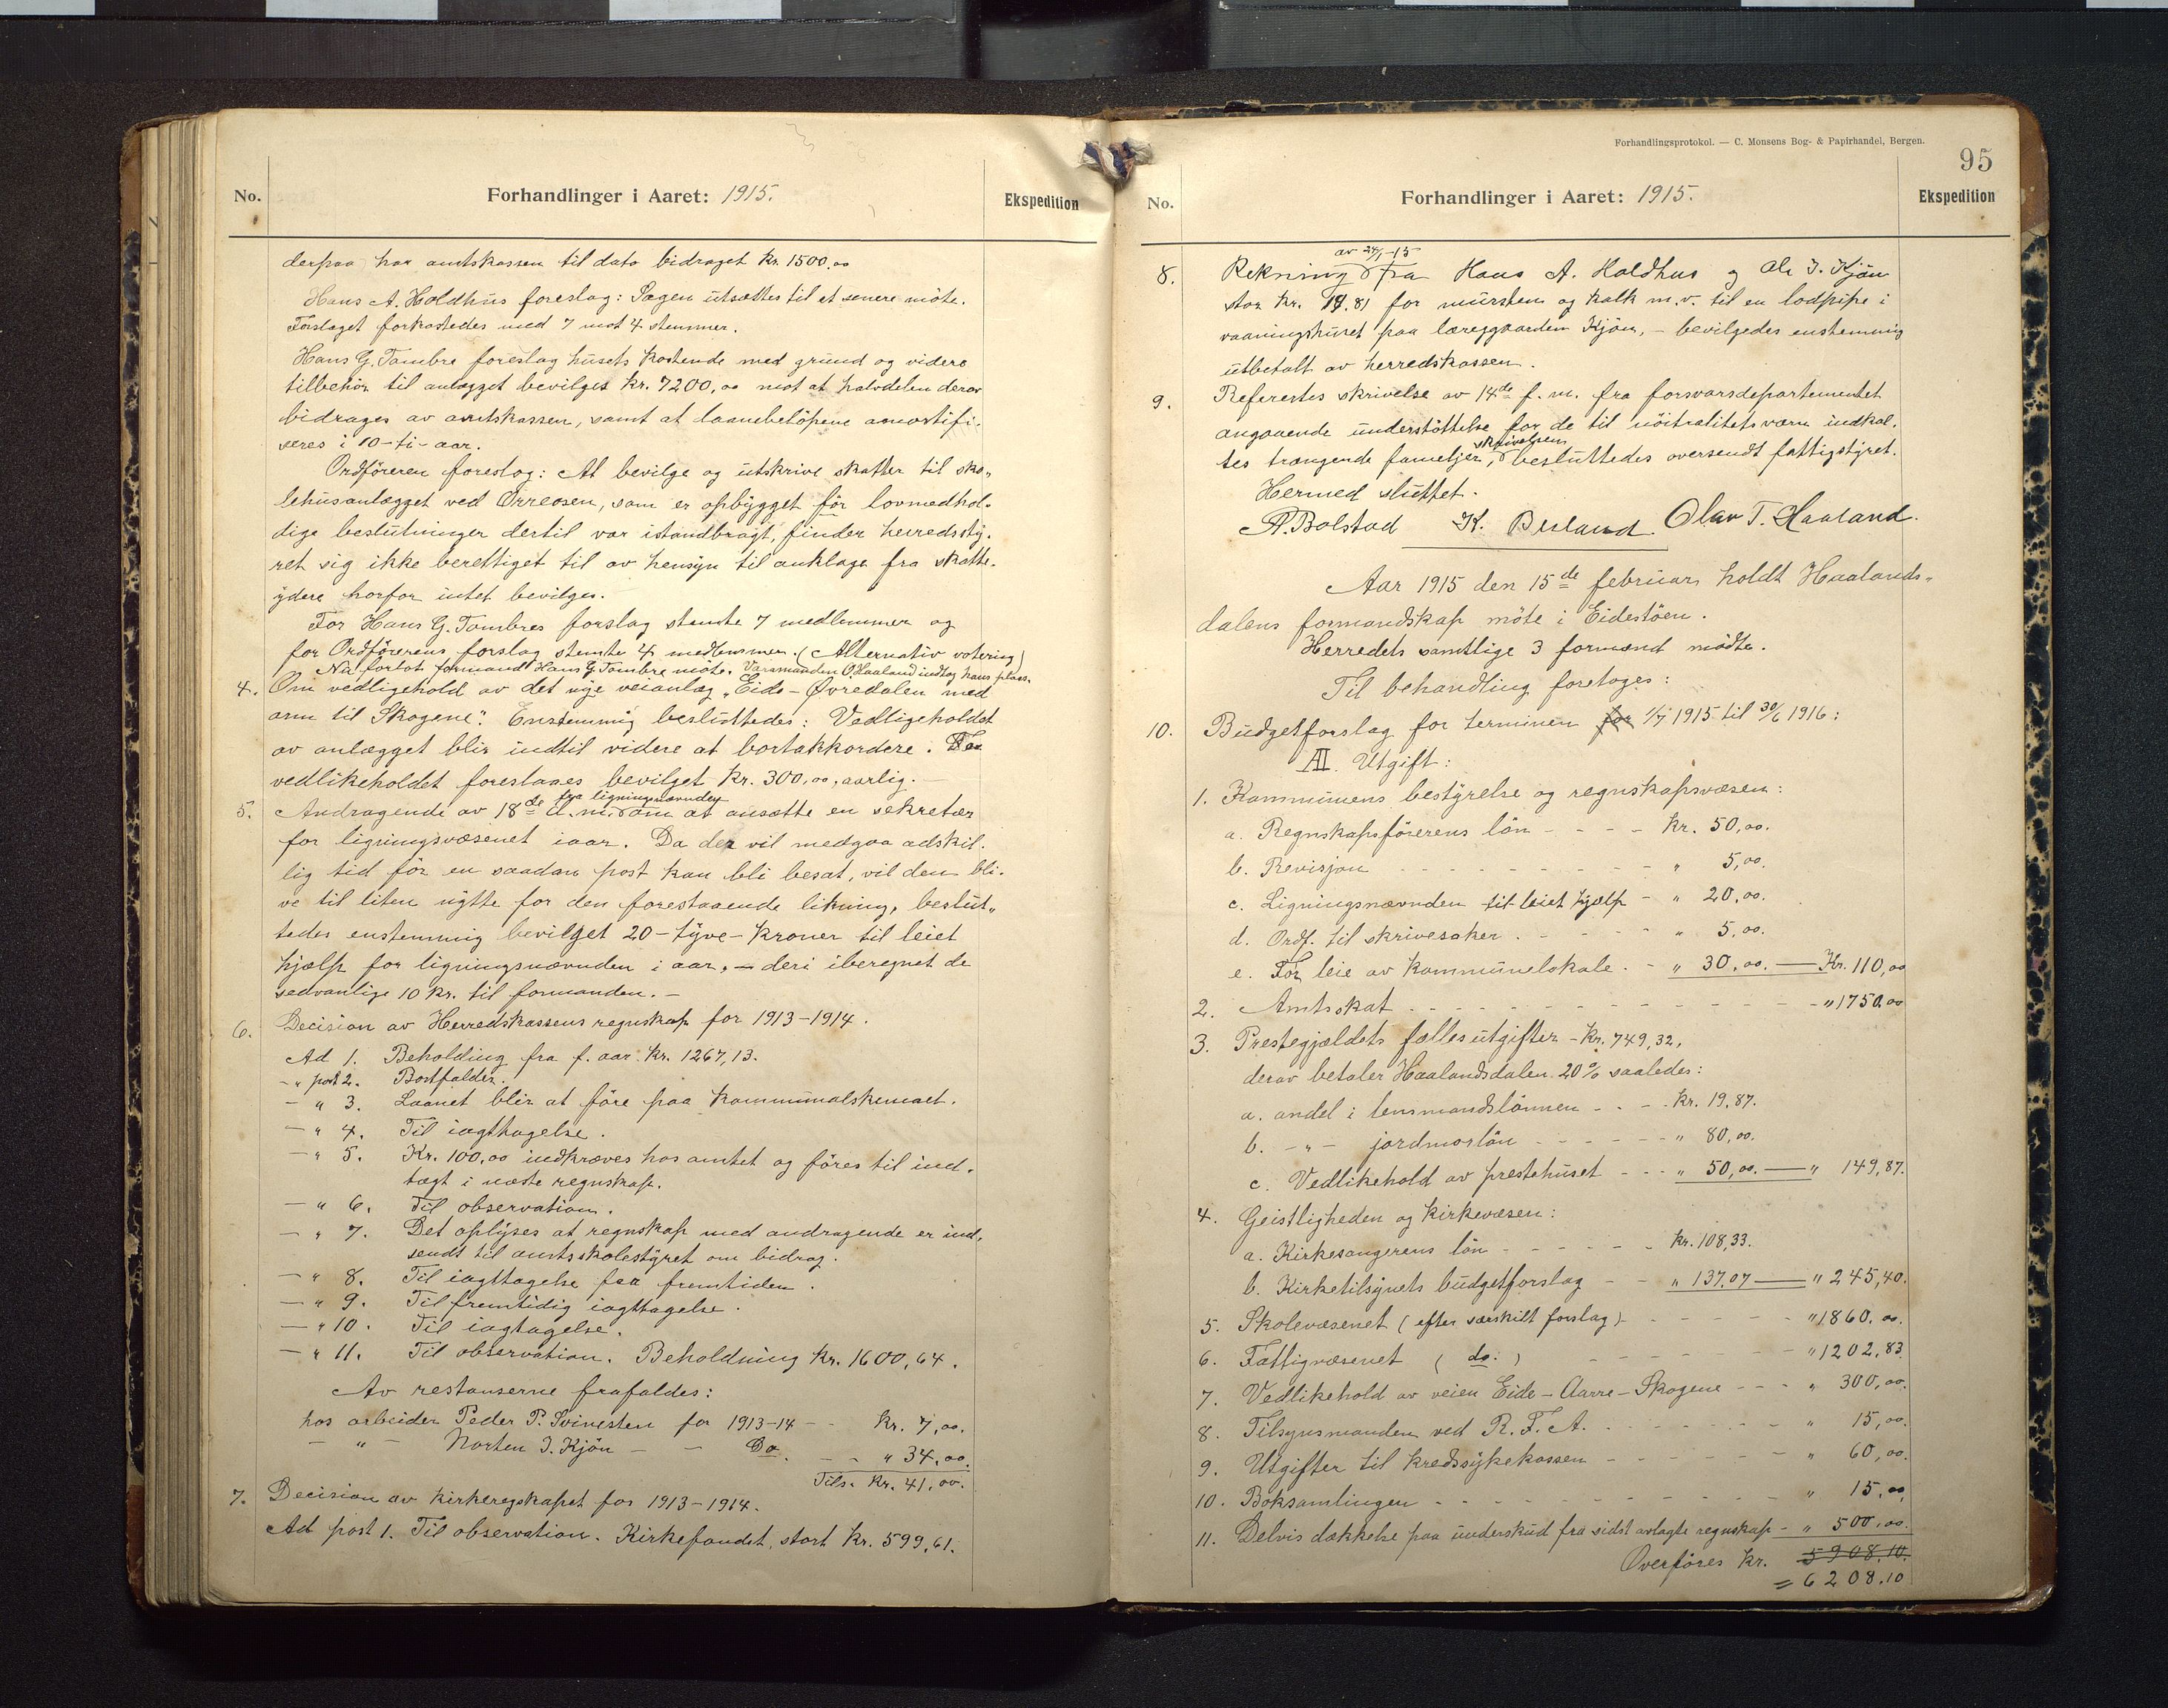 No. Forhandlinger i Aaret: 1915. Ekspedition
derpaa har amtskassen til dato bidraget kr. 1500.00
Hans A. Holdhus foreslog: Sagen utsættes til et senere möte.
Forslaget forkastedes med 7 mot 4 stemmer.
Hans G. Tombre foreslog husets kostende med grund og videre
tilbehör til anlægget bevilget kr. 7200,00 mot at halvdelen derav
bidrages av amtskassen, samt at laanebelöpene amortifi-
seres i 10-ti-aar.
Ordföreren foreslog: At bevilge og utskrive skatter til sko-
lehusanlægget ved Örreosen, som er opbygget för lovmedhol-
dige beslutninger dertil var istandbragt, finder herredssty-
ret sig ikke berettiget til av hensyn til anklage fra skatte-
ydere hvorfor intet bevilges.
For Hans G. Tombres forslag stemte 7 medlemmer og
for Ordförerens forslag stemte 4 medlemmer. (Alternativ votering)
Nu forlot formand Hans G. Tombre möte. Varamanden O. Haaland indtog hans plass.
4. Om vedligehold av det nye veianlæg „Eide-Øvredalen med
arm til Skogene". Enstemmig besluttedes: Vedligeholdet
av anlægget blir indtil videre at bortakkordere. For
vedlikeholdet foreslaaes bevilget kr. 300,00, aarlig.-
fra ligningsnævnden
5. Andragende av 18de d.m. om at ansætte en sekretær
for ligningsvæsenet iaar. Da der vil medgaa adskil-
lig tid för en saadan post kan bli besat, vil den bli-
ve til liten nytte for den forestaaende likning, beslut-
tedes enstemmig bevilget 20-tyve-kroner til leiet
hjælp for ligningsnævnden i aar, - deri iberegnet de
sedvanlige 10 kr. til formanden. -
6. Decision av Herredskassens regnskap for 1913-1914.
Ad 1. Beholding fra f. aar kr. 1267,13.
-„ post 2. Bortfalder.
-„ 3. Laanet blir at före paa kommunalskemaet.
-„ 4. Til iagttagelse.
-„ 5. Kr. 100,00 indkræves hos amtet og föres til ind-
tægt i næste regnskap.
-„ 6. Til observation.
-„ 7. Det oplyses at regnskap med andragende er ind-
sendt til amtsskolestyret om bidrag.
-„ 8. Til iagttagelse for fremtiden.
-„ 9. Til fremtidig iagttagelse.
-„ 10. Til iagtagelse.
-„ 11. Til observation. Beholdning kr. 1600,64.
Av restanserne frafaldes:
hos arbeider Peder P. Svinesten for 1913-14 - - kr. 7,00.
- „ - Morten J. Kjön - - Do. - - „ 34,00.
Tils. kr. 41,00.
7. Decision av kirkeregskapet for 1913-1914.
Ad post 1. Til observation. Kirkefondet, stort kr. 599,61.
Forhandlingsprotokol. — C. Monsens Bog- & Papirhandel, Bergen.
95
No. Forhandlinger i Aaret: 1915. Ekspedition
av 24/1-15
8. Rekning fra Hans A. Holdhus og Ole J. Kjön
stor kr. 19.81 for mursten og kalk m.v. til en lodpipe i
vaaningshuset paa læreggaarden Kjön, - bevilgedes enstemmig
utbetalt av herredskassen.
9. Referertes skrivelse av 14de f.m. fra forsvarsdepartementet
angaaende understöttelse for de til nöitralitetsværn indkal-
skrivelsen
tes trængende fameljer, besluttedes oversendt fattigstyret.
Hermed sluttet.
A. Bolstad K. Birland. Olav T. Haaland.
Aar 1915 den 15de februar holdt Haalands-
dalens formandskap möte i Eidestöen.
Herredets samtlige 3 formænd mödte.
Til behandling foretoges:
10. Budgetforslag for terminen for 1/7 1915 til 30/6 1916:
AI. Utgift:
1. Kommunens bestyrelse og regnskapsvæsen:
a. Regnskapsförerens lön - - - - kr. 50,00.
b. Revisjon - - - - „ 5,00.
c. Ligningsnævnden til leiet hjælp - „ 20,00.
d. Ordf. til skrivesaker. - - - - „ 5,00.
e. For leie av kommunelokale. - „ 30,00. — Kr. 110,00
2. Amtsskat - - - - „ 1750.00
3. Prestegjældets fællesutgifter - Kr. 749,32,
derav betaler Haalandsdalen 20% saaledes:
a. andel i lensmandslönnen - - - kr. 19,87.
b. -„- jordmorlön - - - - „ 80,00.
c. Vedlikehold av prestehuset - - - „ 50,00. — „ 149,87.
4. Geistligheden og kirkevæsen:
a. Kirkesangerens lön - - - - kr. 108,33.
b. Kirketilsynets budgetforslag - - „ 137,07 — „ 245,40.
5. Skolevæsenet (efter særskilt forslag) - - - - „ 1860,00.
6. Fattigvæsenet ( do: ) - - - - „ 1202,83
7. Vedlikehold av veien Eide-Aarre-Skogene - - - „ 300,00.
8. Tilsynsmanden ved R. F. A. - - - - „ 15,00.
9. Utgifter til kredssykekassen - - - - „ 60,00.
10. Boksamlingen - - - - „ 15,00,
11. Delvis dækkelse paa underskud fra sidst avlagte regnskap - „ 500,00.
Overföres kr. 5908,10.
= 6208.10